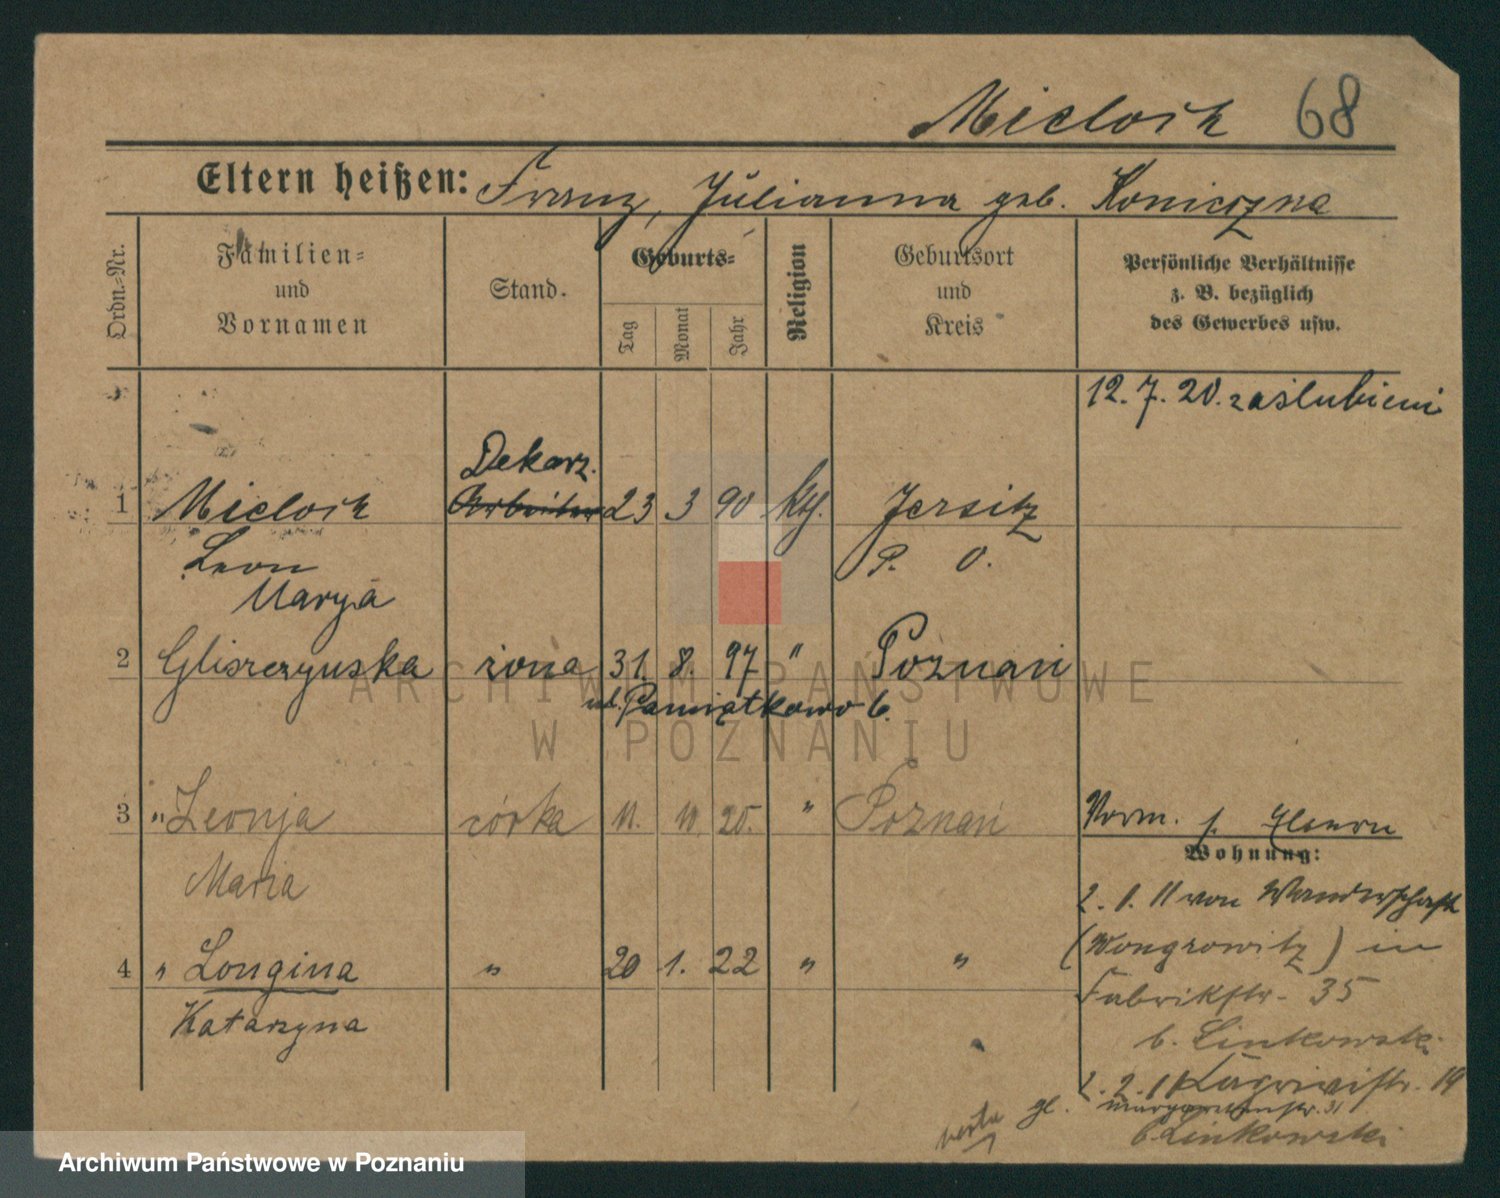 Mieloch 68
Eltern heißen: Franz, Julianna geb. Koniczna
Ordn.-Nr.
Familien-
und
Vornamen
Stand.
Geburts-
Tag
Monat
Jahr
Religion
Geburtsort
und
Kreis
Persönliche Verhältnisse
z. B. bezüglich
des Gewerbes usw.
12. 7. 20. zaślubieni
Dekarz.
1 Mieloch Arbeiter 23 3 90 kth. Jersitz
Leon P. O.
Marya
2 Gliszczynska żona 31. 8. 97 " Poznań
ul. Pamiątkowa 6.
3 " Leonja córka 11. 11. 20. " Poznań
Maria
Vorm. s.
Wohnung:
2. 1. 11 von Wanderschaft
(Wongrowitz) in
Fabrikstr. 35
b. Linkowski
4 " Longina " 20 1. 22 " "
Katarzyna
1. 2. 11 19
gl. Margarethenstr. 31
b Linkowski
verte
ARCHIWUM PAŃSTWOWE
W POZNANIU
Archiwum Państwowe w Poznaniu